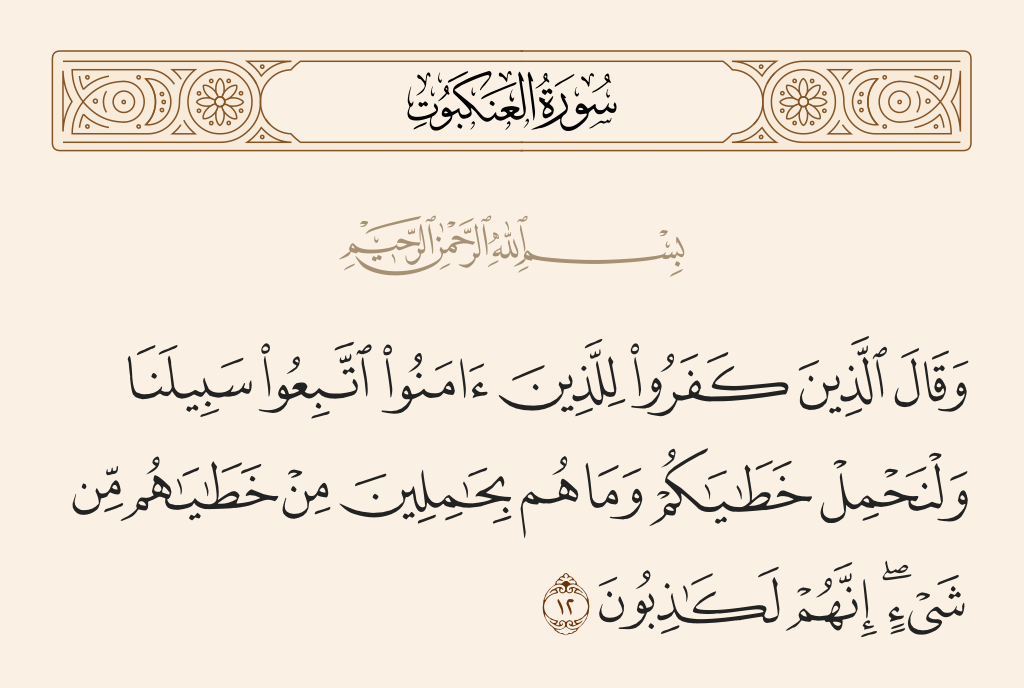 سُورَةُ العَنكَبُوتِ
بِسْمِ ٱللَّهِ ٱلرَّحْمَٰنِ ٱلرَّحِيمِ
وَقَالَ ٱلَّذِينَ كَفَرُوا۟ لِلَّذِينَ ءَامَنُوا۟ ٱتَّبِعُوا۟ سَبِيلَنَا
وَلْنَحْمِلْ خَطَٰيَٰكُمْ وَمَا هُم بِحَٰمِلِينَ مِنْ خَطَٰيَٰهُم مِّن
شَىْءٍ ۖ إِنَّهُمْ لَكَٰذِبُونَ ١٢